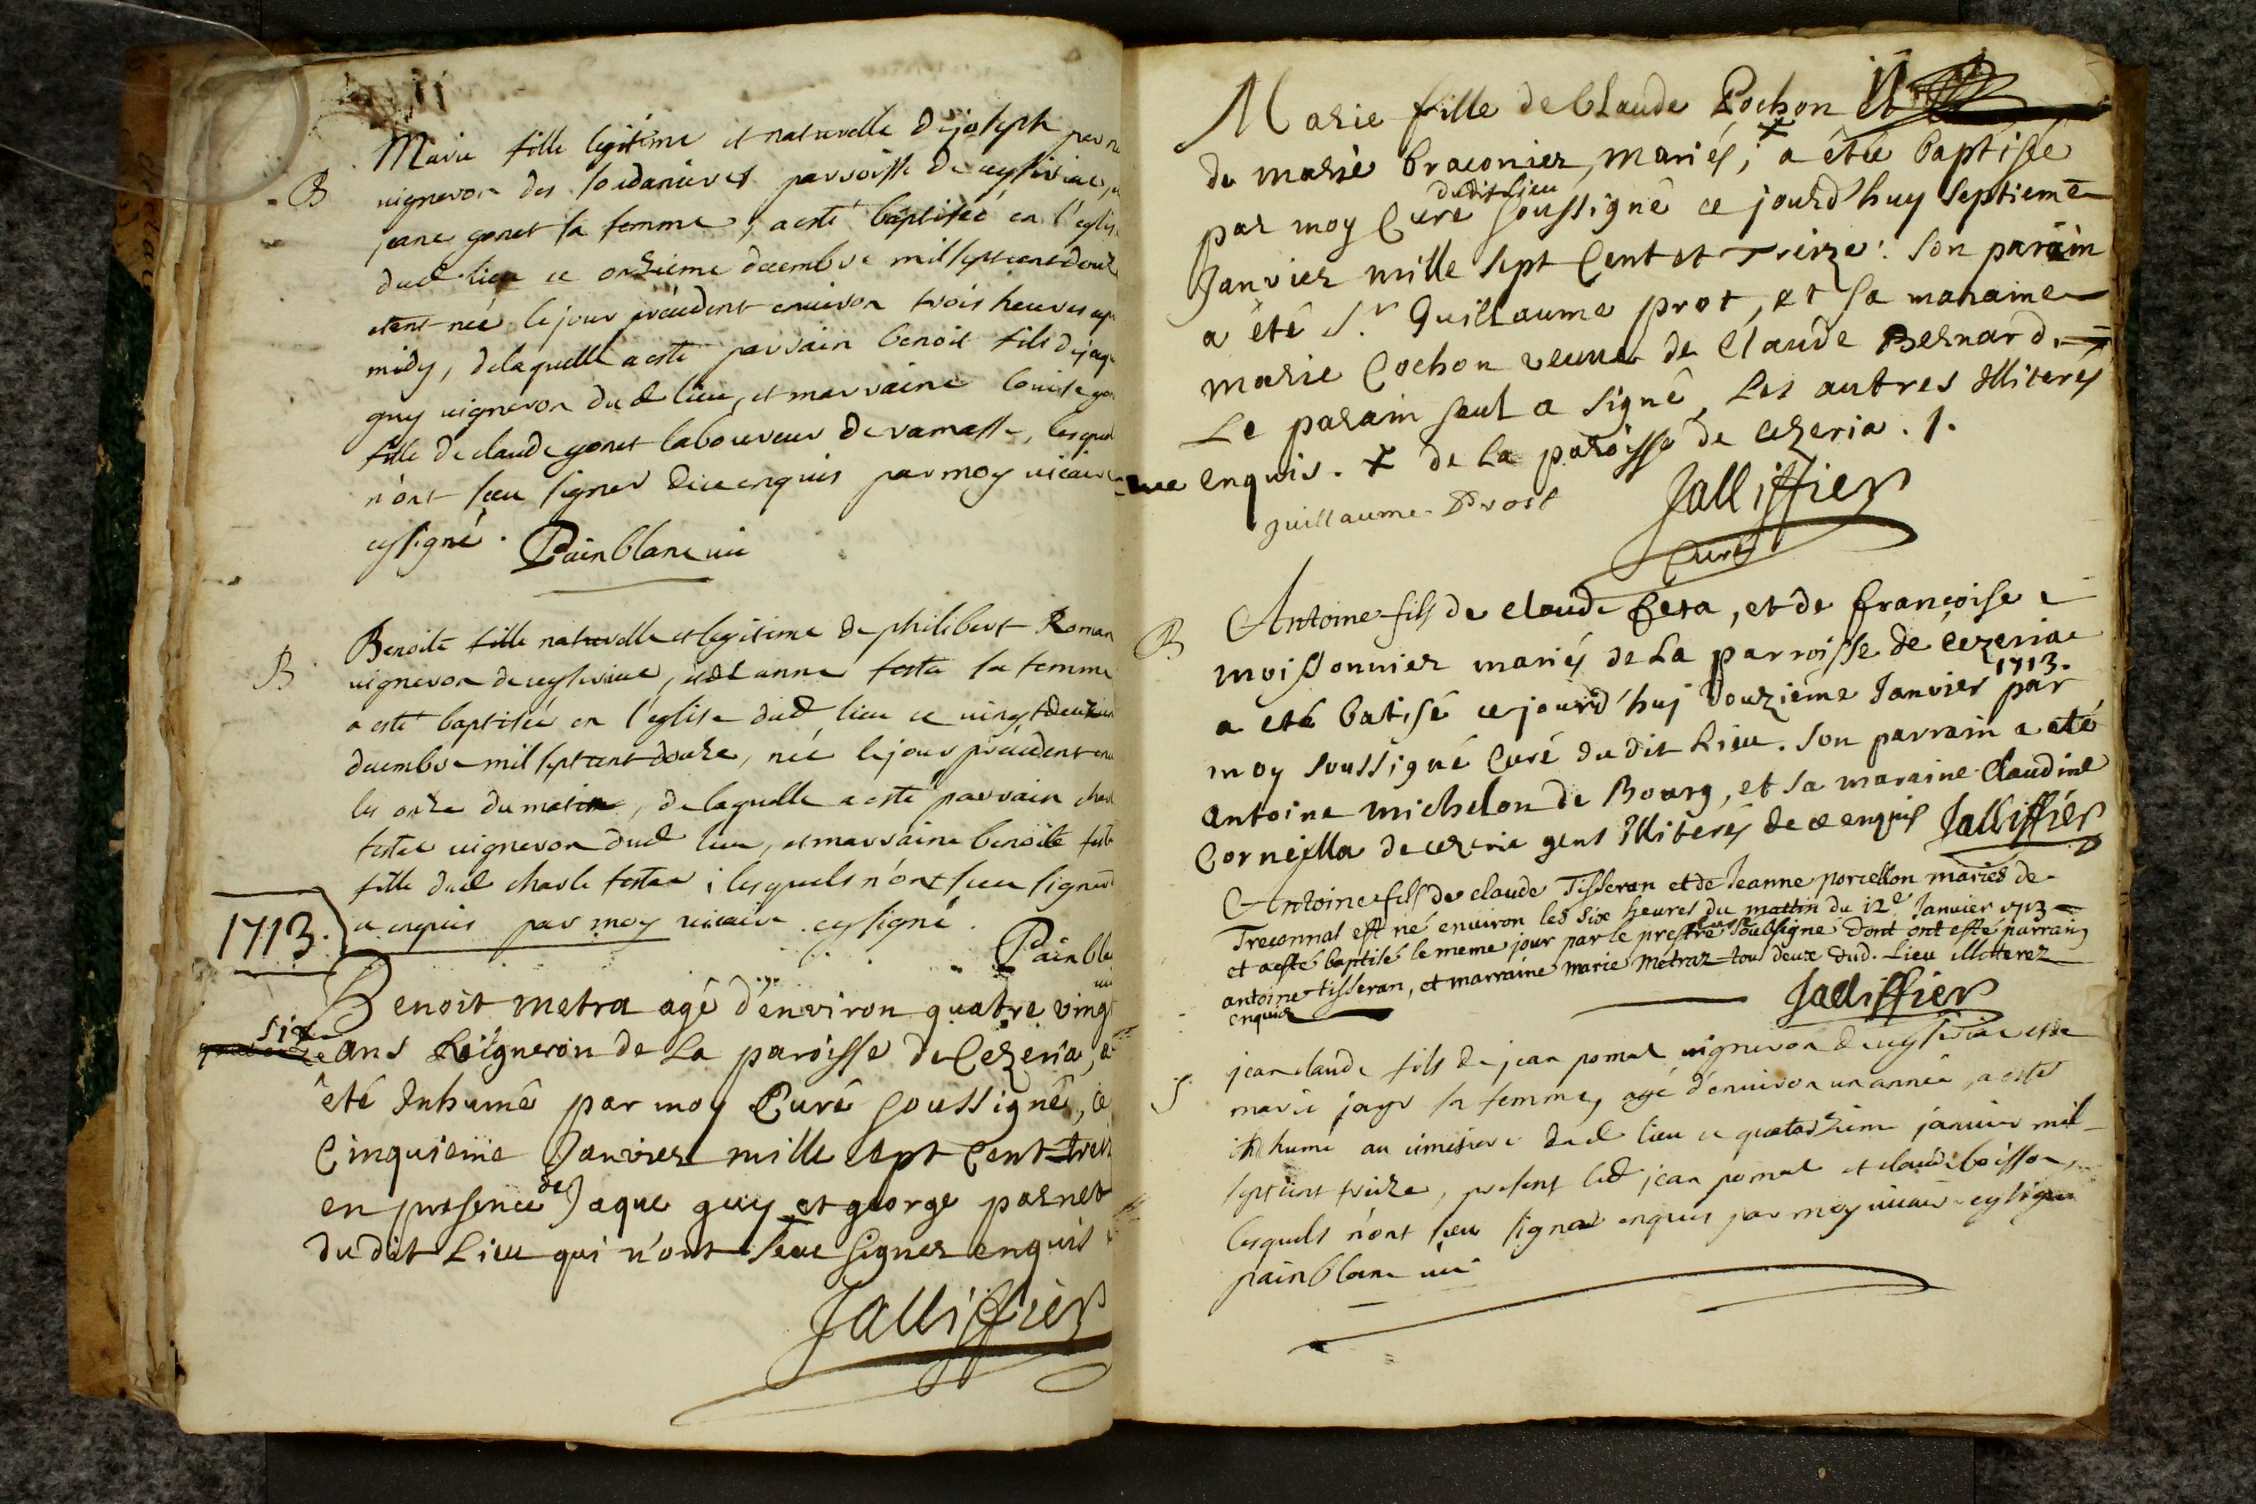 Marie fille legitime et naturelle de joseph
B
vigneron des soudanieres parroisse de ceyseriac,
jeane gonet sa femme, a esté baptisée en l'eglise
dud lieu ce onzieme decembre mil sept cent douze
etant née le jour précédent environ trois heures
midy, de laquelle a esté parrain benoit fils de jaque
guy vigneron dud lieu, et marraine louise
fille de claude gonet laboureur de ramasse, lesquels
n'ont sceu signer de ce enquis par moy vicaire
cysigné.
Painblanc vic
Benoite fille naturelle et legitime de philibert Roman
B
vigneron de ceyseriac, et de anne festa sa femme
a esté baptisée en l'eglise dud lieu ce vingt deuxie
decembre mil sept cent douze, née le jour précédent
les onze du matin, de laquelle a esté parrain
festa vigneron dud lieu, et marraine benoite
fille dud charle festa; lesquels n'ont sceu signer
ce enquis par moy vicaire cysigné.
1713.
Painbla
Benoit metra agé d'environ quatre vingt
six
ans Vigneron de La paroisse de Cezeria, a
été Inhumé par moy Curé soussigné, ce
Cinquieme Janvier mille sept Cent treiz
en presence de Jaque guy et george parnet
du dit Lieu qui n'ont seue signer enquis
Jalliffier
Marie fille de Claude Pochon et
de marie braconier, mariés, x a été baptisée
dudit lieu
par moy Curé soussigné ce jourd'huy septieme
Janvier mille sept Cent et Treize. Son parain
a été Sr. Guillaume prot, et sa maraine
marie Cochon veuve de Claude Bernard.
Le parain seul a signé, Les autres Illiterés
enquis. x de La paroisse de cezeria. /.
guillaume Prost
Jalliffier
Curé
Antoine fils de claude Cera, et de françoise
B
moissonnier mariés de La parroisse de cezeria
1713.
a eté batisé ce jourd'huj douzieme Janvier par
moy soussigné Curé du dit Lieu. son parrain a eté
antoine michelon de Bourg, et sa maraine Claudine
Corneilla de cezeria gens Illiterés de ce enquis Jalliffier
Antoine fils de claude Tisseran et de Jeanne porcellon mariés de
Treconnas est né environ les six heures du mattin du 12e Janvier 1713
et a esté baptisé le meme jour par le prestre soubsigné dont ont esté parrain
antoine tisseran, et marraine marie metraz tous deux dud. Lieu illitterez
enquis
Jalliffier
jean claude fils de jean pomel vigneron de ceyseriac et de
S
marie jayr sa femme, agé d'environ un année, a esté
inhumé au cimetiere dud lieu ce quatorzieme janvier mil
sept cent treize, present led jean pomel et claude boisson,
lesquels n'ont sceu signer enquis par moy vicaire cysigné
painblanc vic